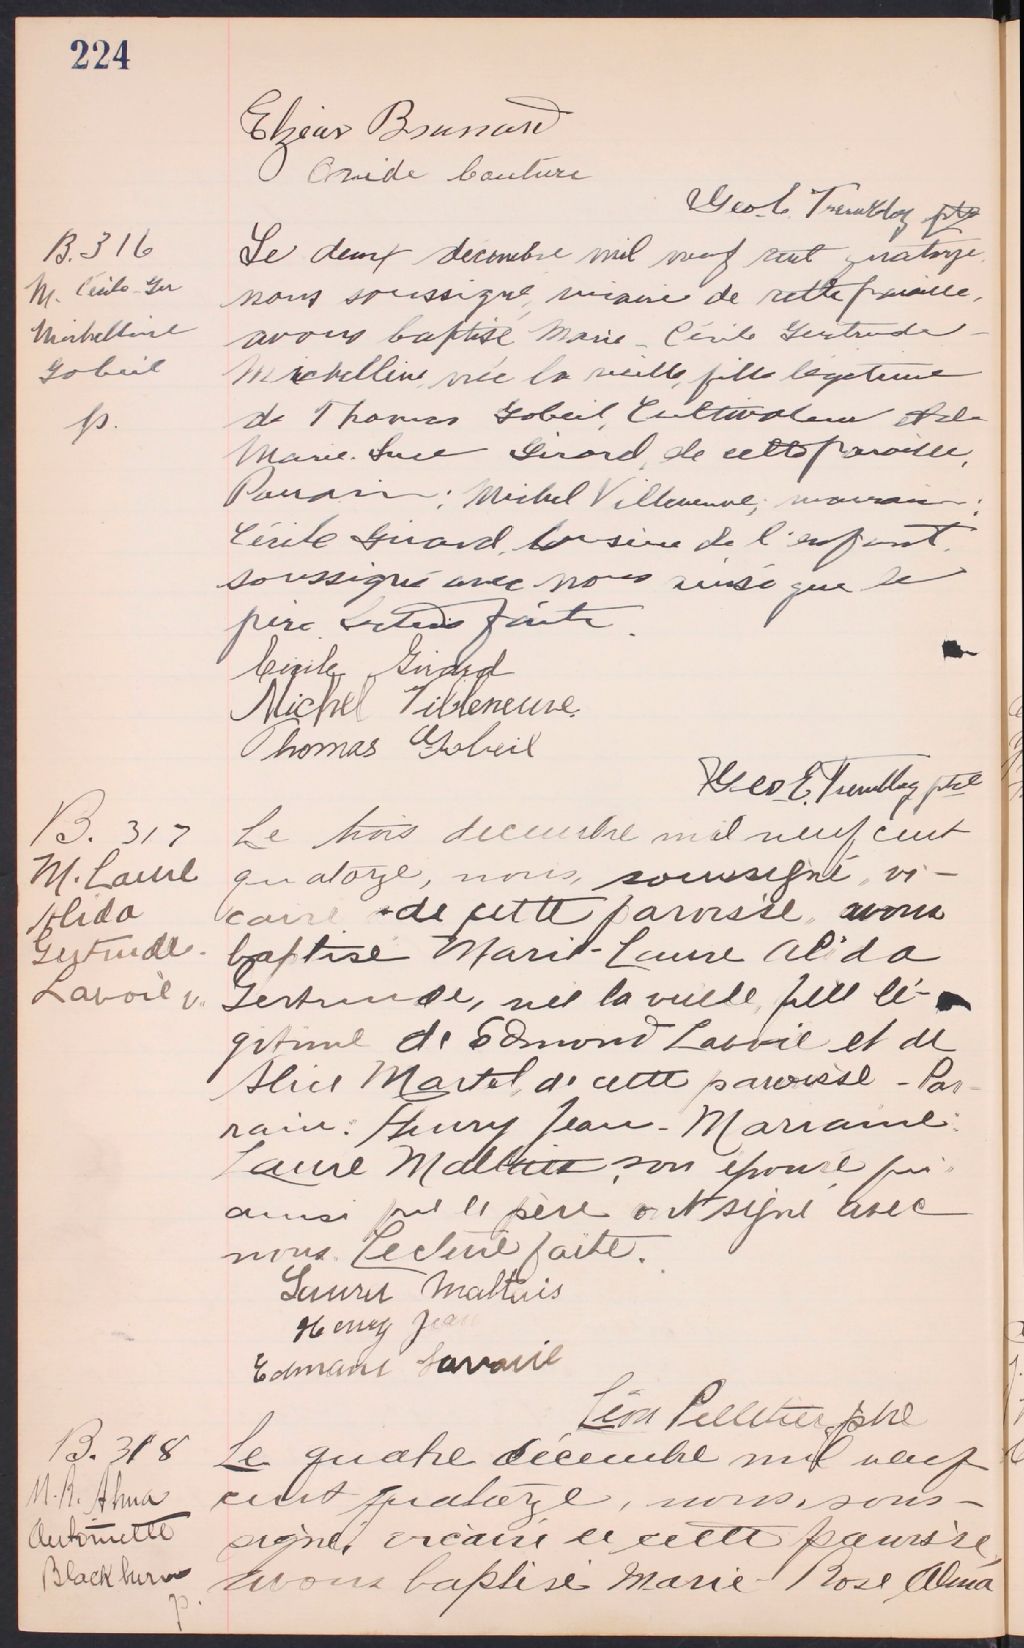 224
Elzéar Brassard
Ovide Couture
Geo. E. Tremblay ptre
B. 316
M. Cécile Ger
Michelline
Gobeil
p.
Le deux décembre mil neuf cent quatorze,
nous soussigné, vicaire de cette paroisse,
avons baptisé Marie - Cécile Gertrude -
Michelline, née la veille, fille légitime
de Thomas Gobeil, Cultivateur et de
Marie. Luce Girard, de cette paroisse,
Parrain: Michel Villeneuve, marraine:
Cécile Girard, cousine de l'enfant,
soussignés avec nous ainsi que le
père. Lecture faite.
Cécile Girard
Michel Villeneuve
Thomas Gobeil
Geo E. Tremblay ptre
B. 317
M. Laure
Alida
Gertrude
Lavoie
Le trois decembre mil neuf cent
quatorze, nous, soussigné, vi-
caire de cette paroisse, avons
baptisé Marie-Laure Alida
Gertrude, née la veille, fille lé-
gitime de Edmond Lavoie et de
Alice Martel, de cette paroisse - Par-
rain: Henry Jean - Marraine:
Laure Maltais, son épouse qui
ainsi que le père ont signé avec
nous. Lecture faite.
Laure Maltais
Henry Jean
Edmond Lavoie
Léon Pelletier, ptre
B. 318
M. R. Alma
Antoinette
Blackburn
p.
Le quatre décembre mil neuf
cent quatorze, nous, sous-
signé, vicaire de cette paroisse,
avons baptisé Marie-Rose Alma